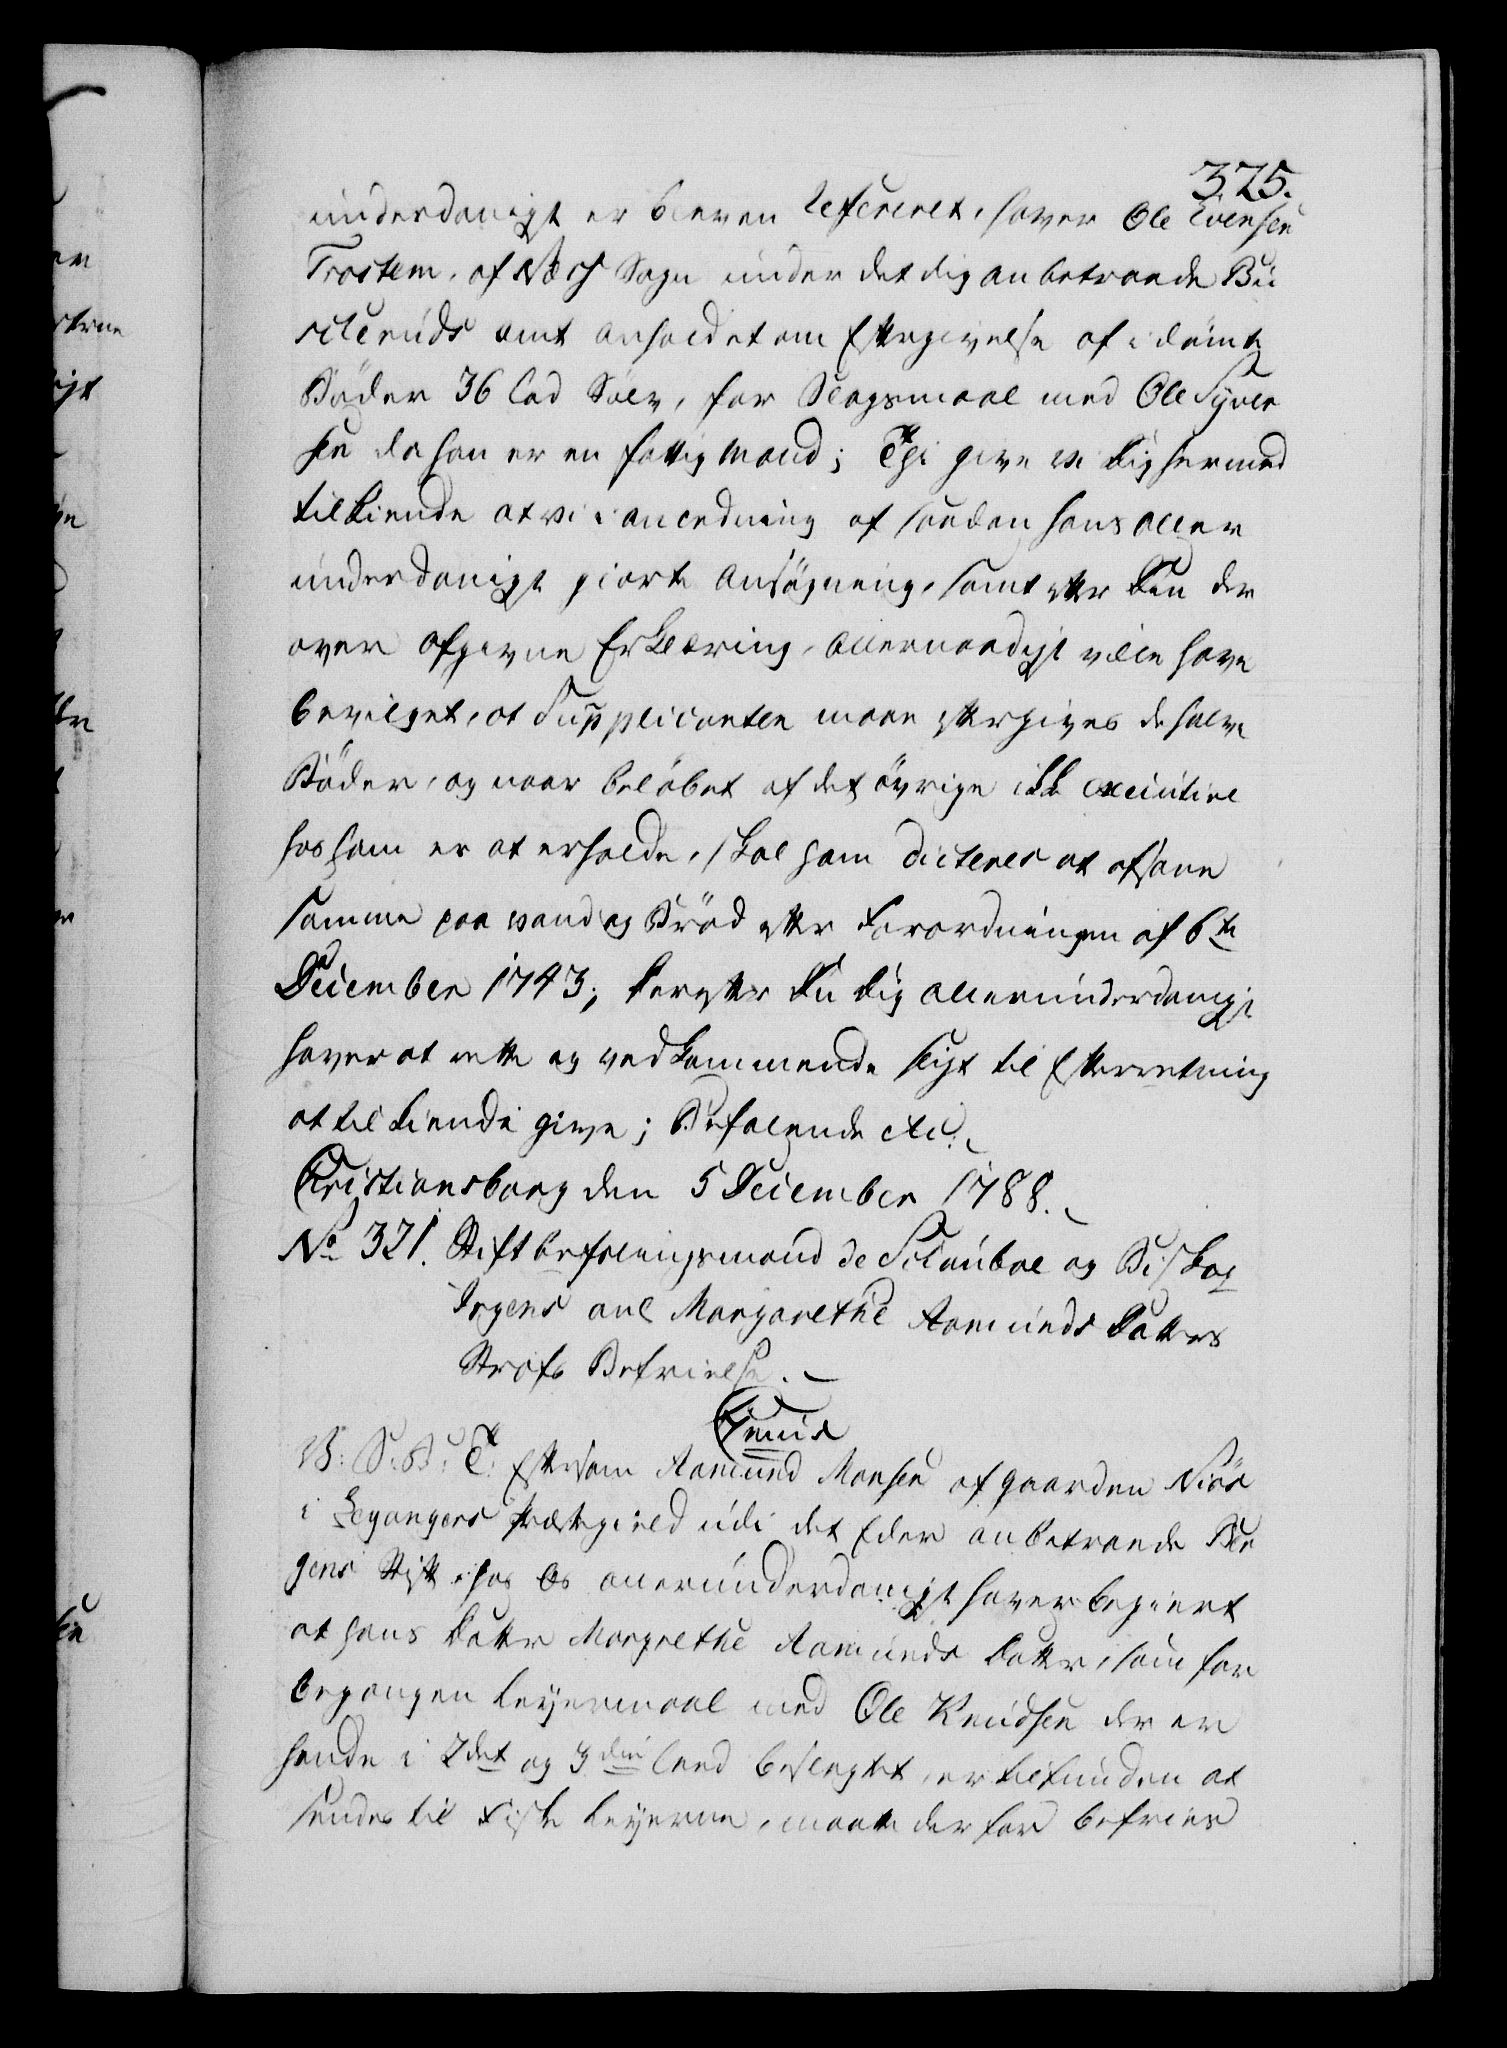 325.
underdanigst er bleven refereret, haver Ole Evensen
Trostem, af Næss Sogn under det dig anbetroede Bu
scheruds Amt anholdet om Eftergivelse af idömte
Böder 36 Lod Sölv, for Slagsmaal med Ole Syver
sen da han er en fattig Mand; Thi give vi Dig hermed
tilkiende at vi i anledning af saadan hans aller
underdanigst giorte Ansögning, samt efter Din der
over afgivne Erklæring, allernaadigst ville have
bevilget, at Supplicanten maae eftergives de halve
Böder, og naar belöbet af det övrige ikke executive
hos ham er at erholde, skal ham dicteres at afsone
samme paa vand og Bröd efter Forordningen af 6te
December 1743; Derefter Du Dig allerunderdanigst
haver at rette og vedkommende sligt til Efterretning
at tilkiende give; Befalende etc:
Christiansborg den 5 December 1788.
No 321. Stiftbefalingsmand de Schouboe og Biskop
Irgens anl Margarethe Aamunds Datters
Strafs Befrielse.
C 7mus
V: S: B: C: T: Eftersom Aamund Monsen af gaarden Niös
i Leganger Præstegield udi det Eder anbetroede Ber
gens Stift, hos Os allerunderdanigst haver begiert
at hans Datter Margrethe Aamunds Datter, som for
begangen Leyermaal med Ole Knudsen der er
hende i 2det og 3die Leed beslegtet, er tilfunden at
sendes til Fiske Leyerne, maatte derfor befries